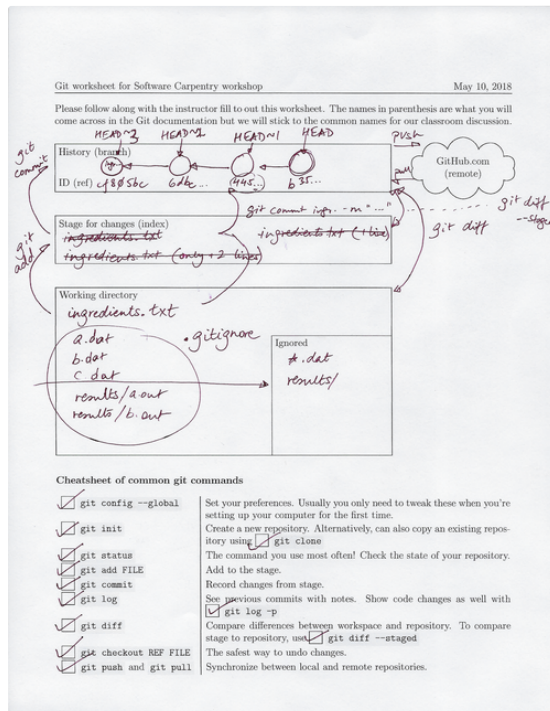 Git worksheet for Software Carpentry workshop May 10, 2018
Please follow along with the instructor fill to out this worksheet. The names in parenthesis are what you will
come across in the Git documentation but we will stick to the common names for our classroom discussion.
HEAD~3 HEAD~2 HEAD~1 HEAD
push
git commit
History (branch)
GitHub.com
(remote)
pull
ID (ref) 6dbc... (445...) b35...
git diff
--staged
git commit ingr. -m "..."
git diff
Stage for changes (index)
ingredients.txt
ingredients.txt (+1 line)
git add
ingredients.txt (only +2 lines)
Working directory
ingredients.txt
.gitignore
a.dat
b.dat
c.dat
results/a.out
results/b.out
Ignored
*.dat
results/
Cheatsheet of common git commands
git config --global Set your preferences. Usually you only need to tweak these when you're
setting up your computer for the first time.
git init Create a new repository. Alternatively, can also copy an existing repos-
itory using git clone
git status The command you use most often! Check the state of your repository.
git add FILE Add to the stage.
git commit Record changes from stage.
git log See previous commits with notes. Show code changes as well with
git log -p
git diff Compare differences between workspace and repository. To compare
stage to repository, use git diff --staged
git checkout REF FILE The safest way to undo changes.
git push and git pull Synchronize between local and remote repositories.